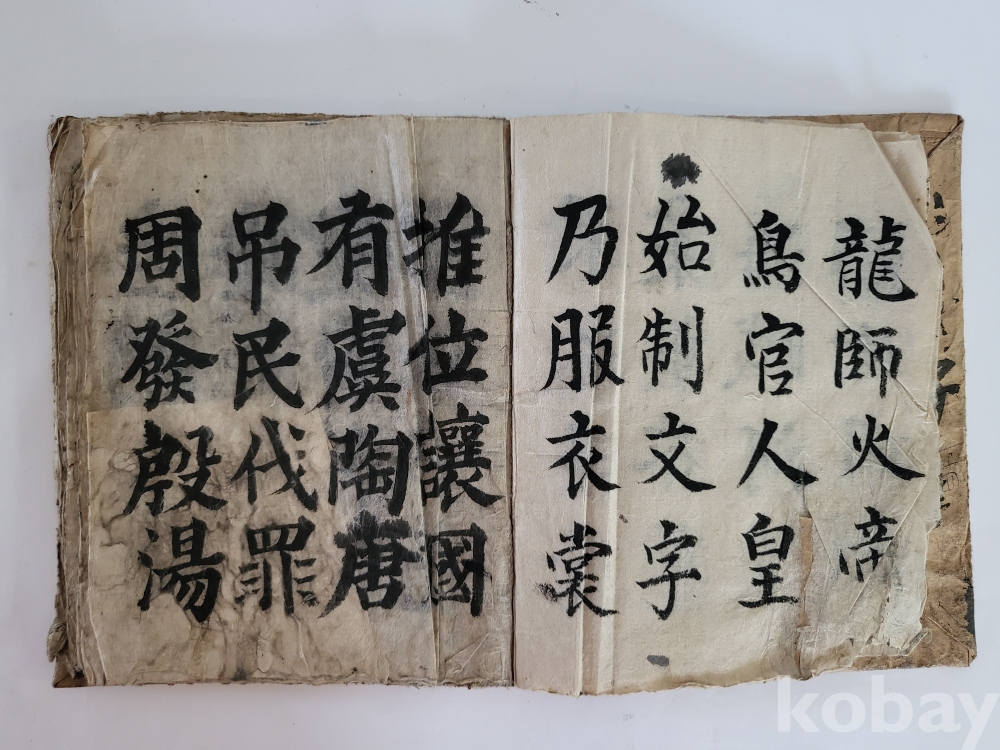 龍師火帝
鳥官人皇
始制文字
乃服衣裳
推位讓國
有虞陶唐
吊民伐罪
周發殷湯
kobay